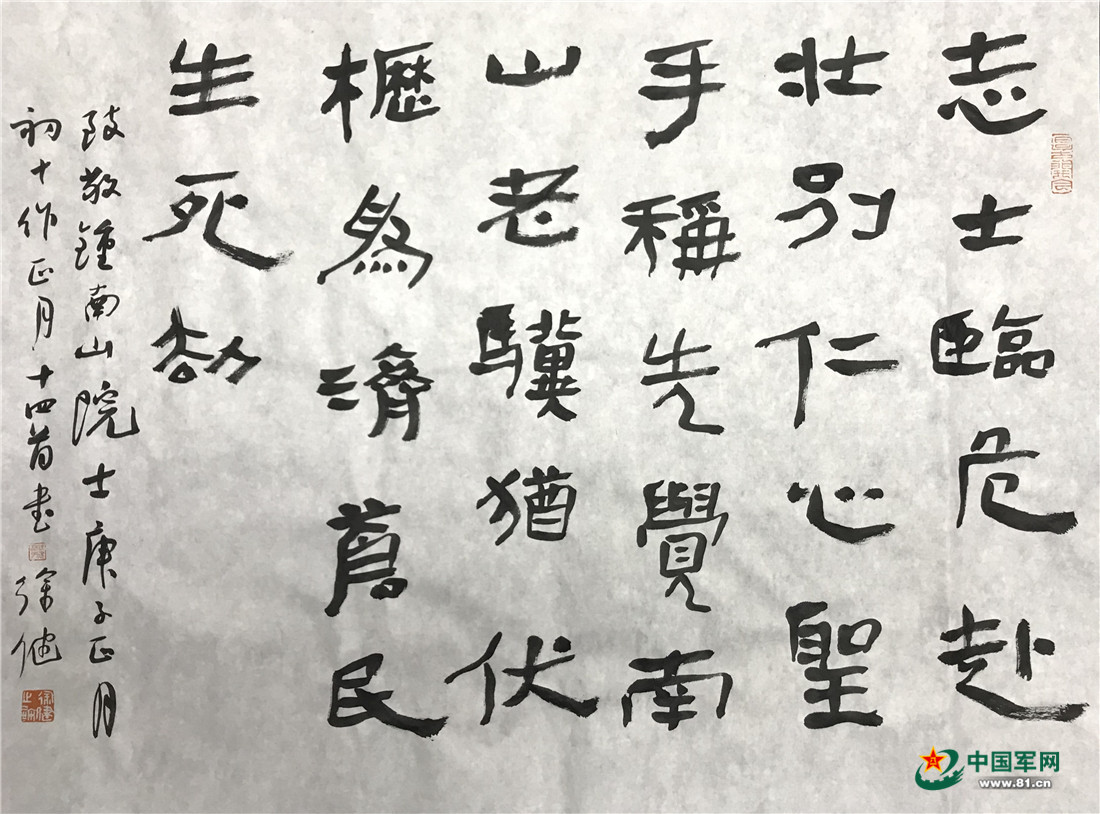 志士臨危赴
壮别仁心聖
手稱先覺南
山老驥猶伏
櫪為濟蒼民
生死劫
致敬鍾南山院士庚子正月
初十作正月十四首書 徐健
中国军网
www.81.cn